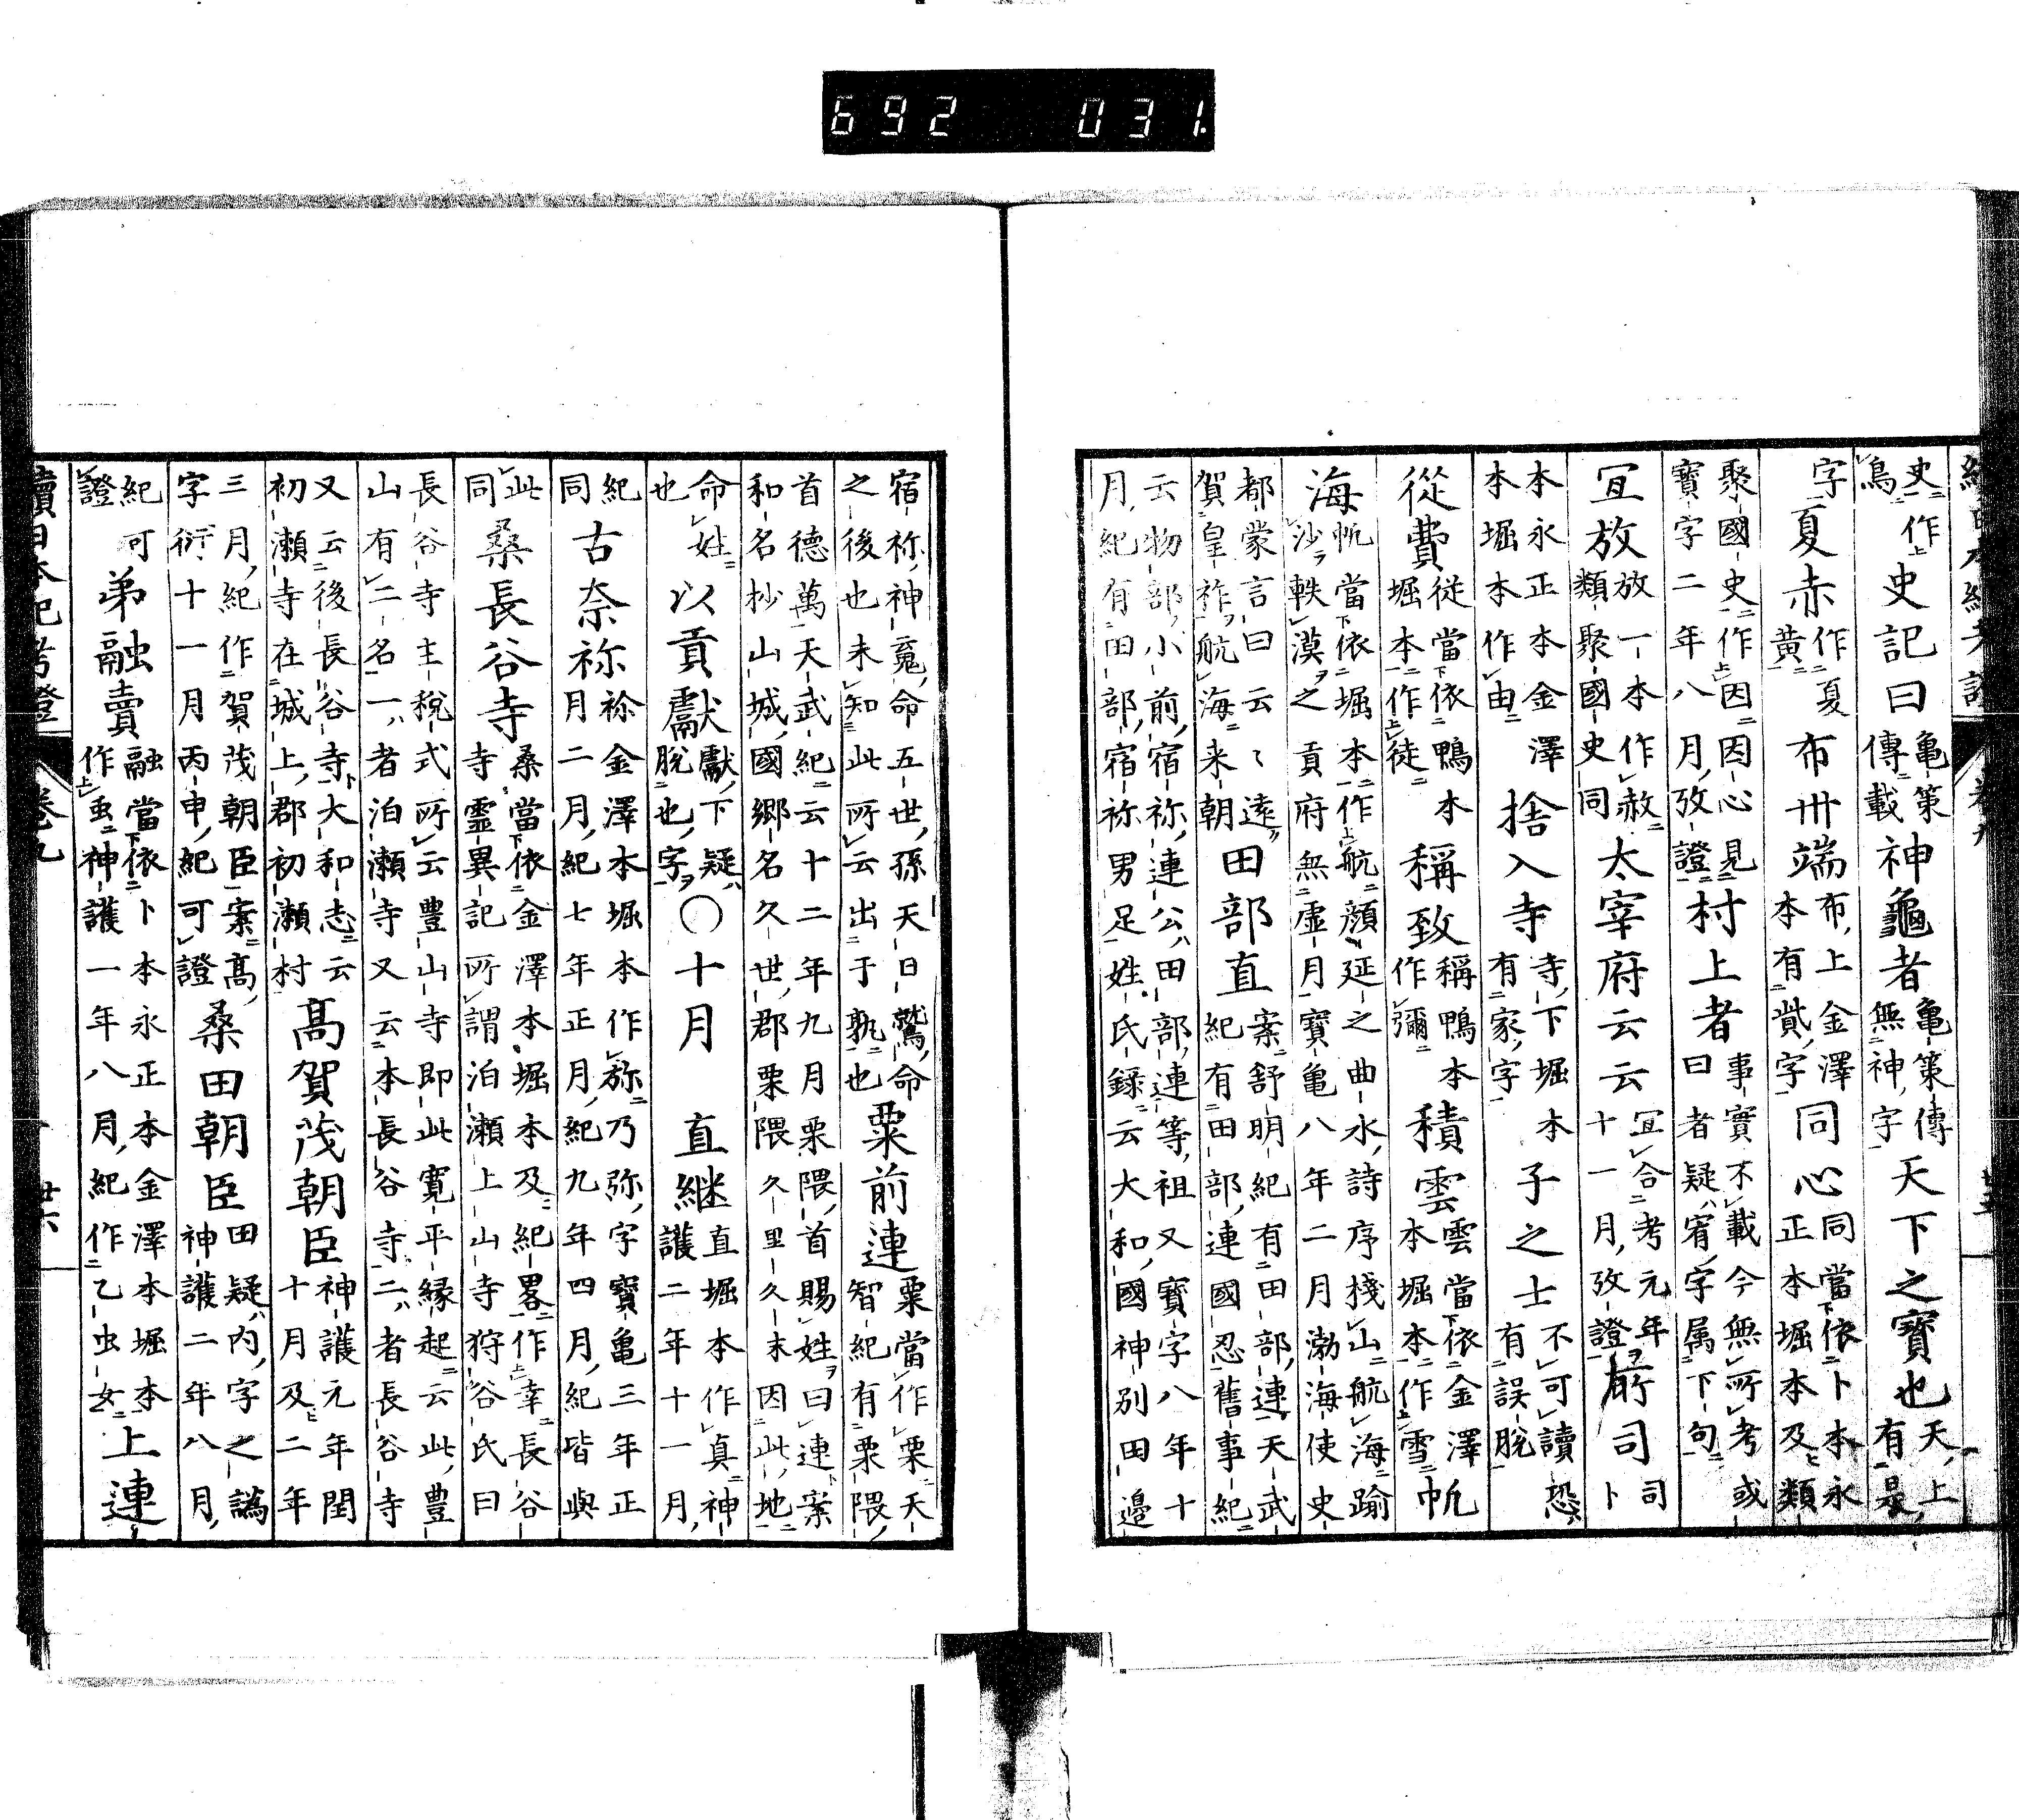 692 031.
續日本紀考證 卷九 廿五
史作鳥史記曰龜策傳載神龜者龜策傳無神字天下之寶也天上有是
字夏赤作夏黄布卅端布上金澤本有貲字同心同當依卜本永正本堀本及類
聚國史作因因心見寶字二年八月攷證村上者事實不載今無所考或曰者疑宥字属下句
宜放放一本作赦類聚國史同太宰府云云宜合考元年十一月攷證所司司卜
本永正本金澤本堀本作由捨入寺寺下堀本有家字子之士不可讀恐有誤脱
從費從當依鴨本堀本作徒稱致稱鴨本作彌積雲雲當依金澤本堀本作雪帆
海帆當依堀本作航顔延之曲水詩序棧山航海踰沙軼漠之貢府無虛月寶亀八年二月渤海使史
都蒙言曰云々遠賀皇祚航海来朝田部直案舒明紀有田部連天武紀有田部連國忍舊事紀
云物部小前宿祢連公田部連等祖又寶字八年十月紀有田部宿祢男足姓氏録云大和國神別田邊
宿祢神䰟命五世孫天日鷲命之後也未知此所云出于孰也粟前連粟當作栗天智紀有栗隈
首德萬天武紀云十二年九月栗隈首賜姓曰連案和名抄山城國郷名久世郡栗隈久里久末因此地
命姓也以貢獻獻下疑脱也字○十月 直継直堀本作真神護二年十一月
紀同古奈祢祢金澤本堀本作旀乃弥字寶亀三年正月二月紀七年正月紀九年四月紀皆與
此同桑長谷寺桑當依金澤本堀本及紀畧作幸長谷寺靈異記所謂泊瀬上山寺狩谷氏曰
長谷寺主税式所云豊山寺即此寛平縁起云此豊山有二名一者泊瀬寺又云本長谷寺二者長谷寺
又云後長谷寺大和志云初瀬寺在城上郡初瀬村髙賀茂朝臣神護元年閏十月及二年
三月紀作賀茂朝臣案髙字衍十一月丙申紀可證桑田朝臣田疑内字之譌神護二年八月
紀可證弟融賣融當依卜本永正本金澤本堀本作䖝神護一年八月紀作乙虫女上連
續日本紀考證 卷九 廿六